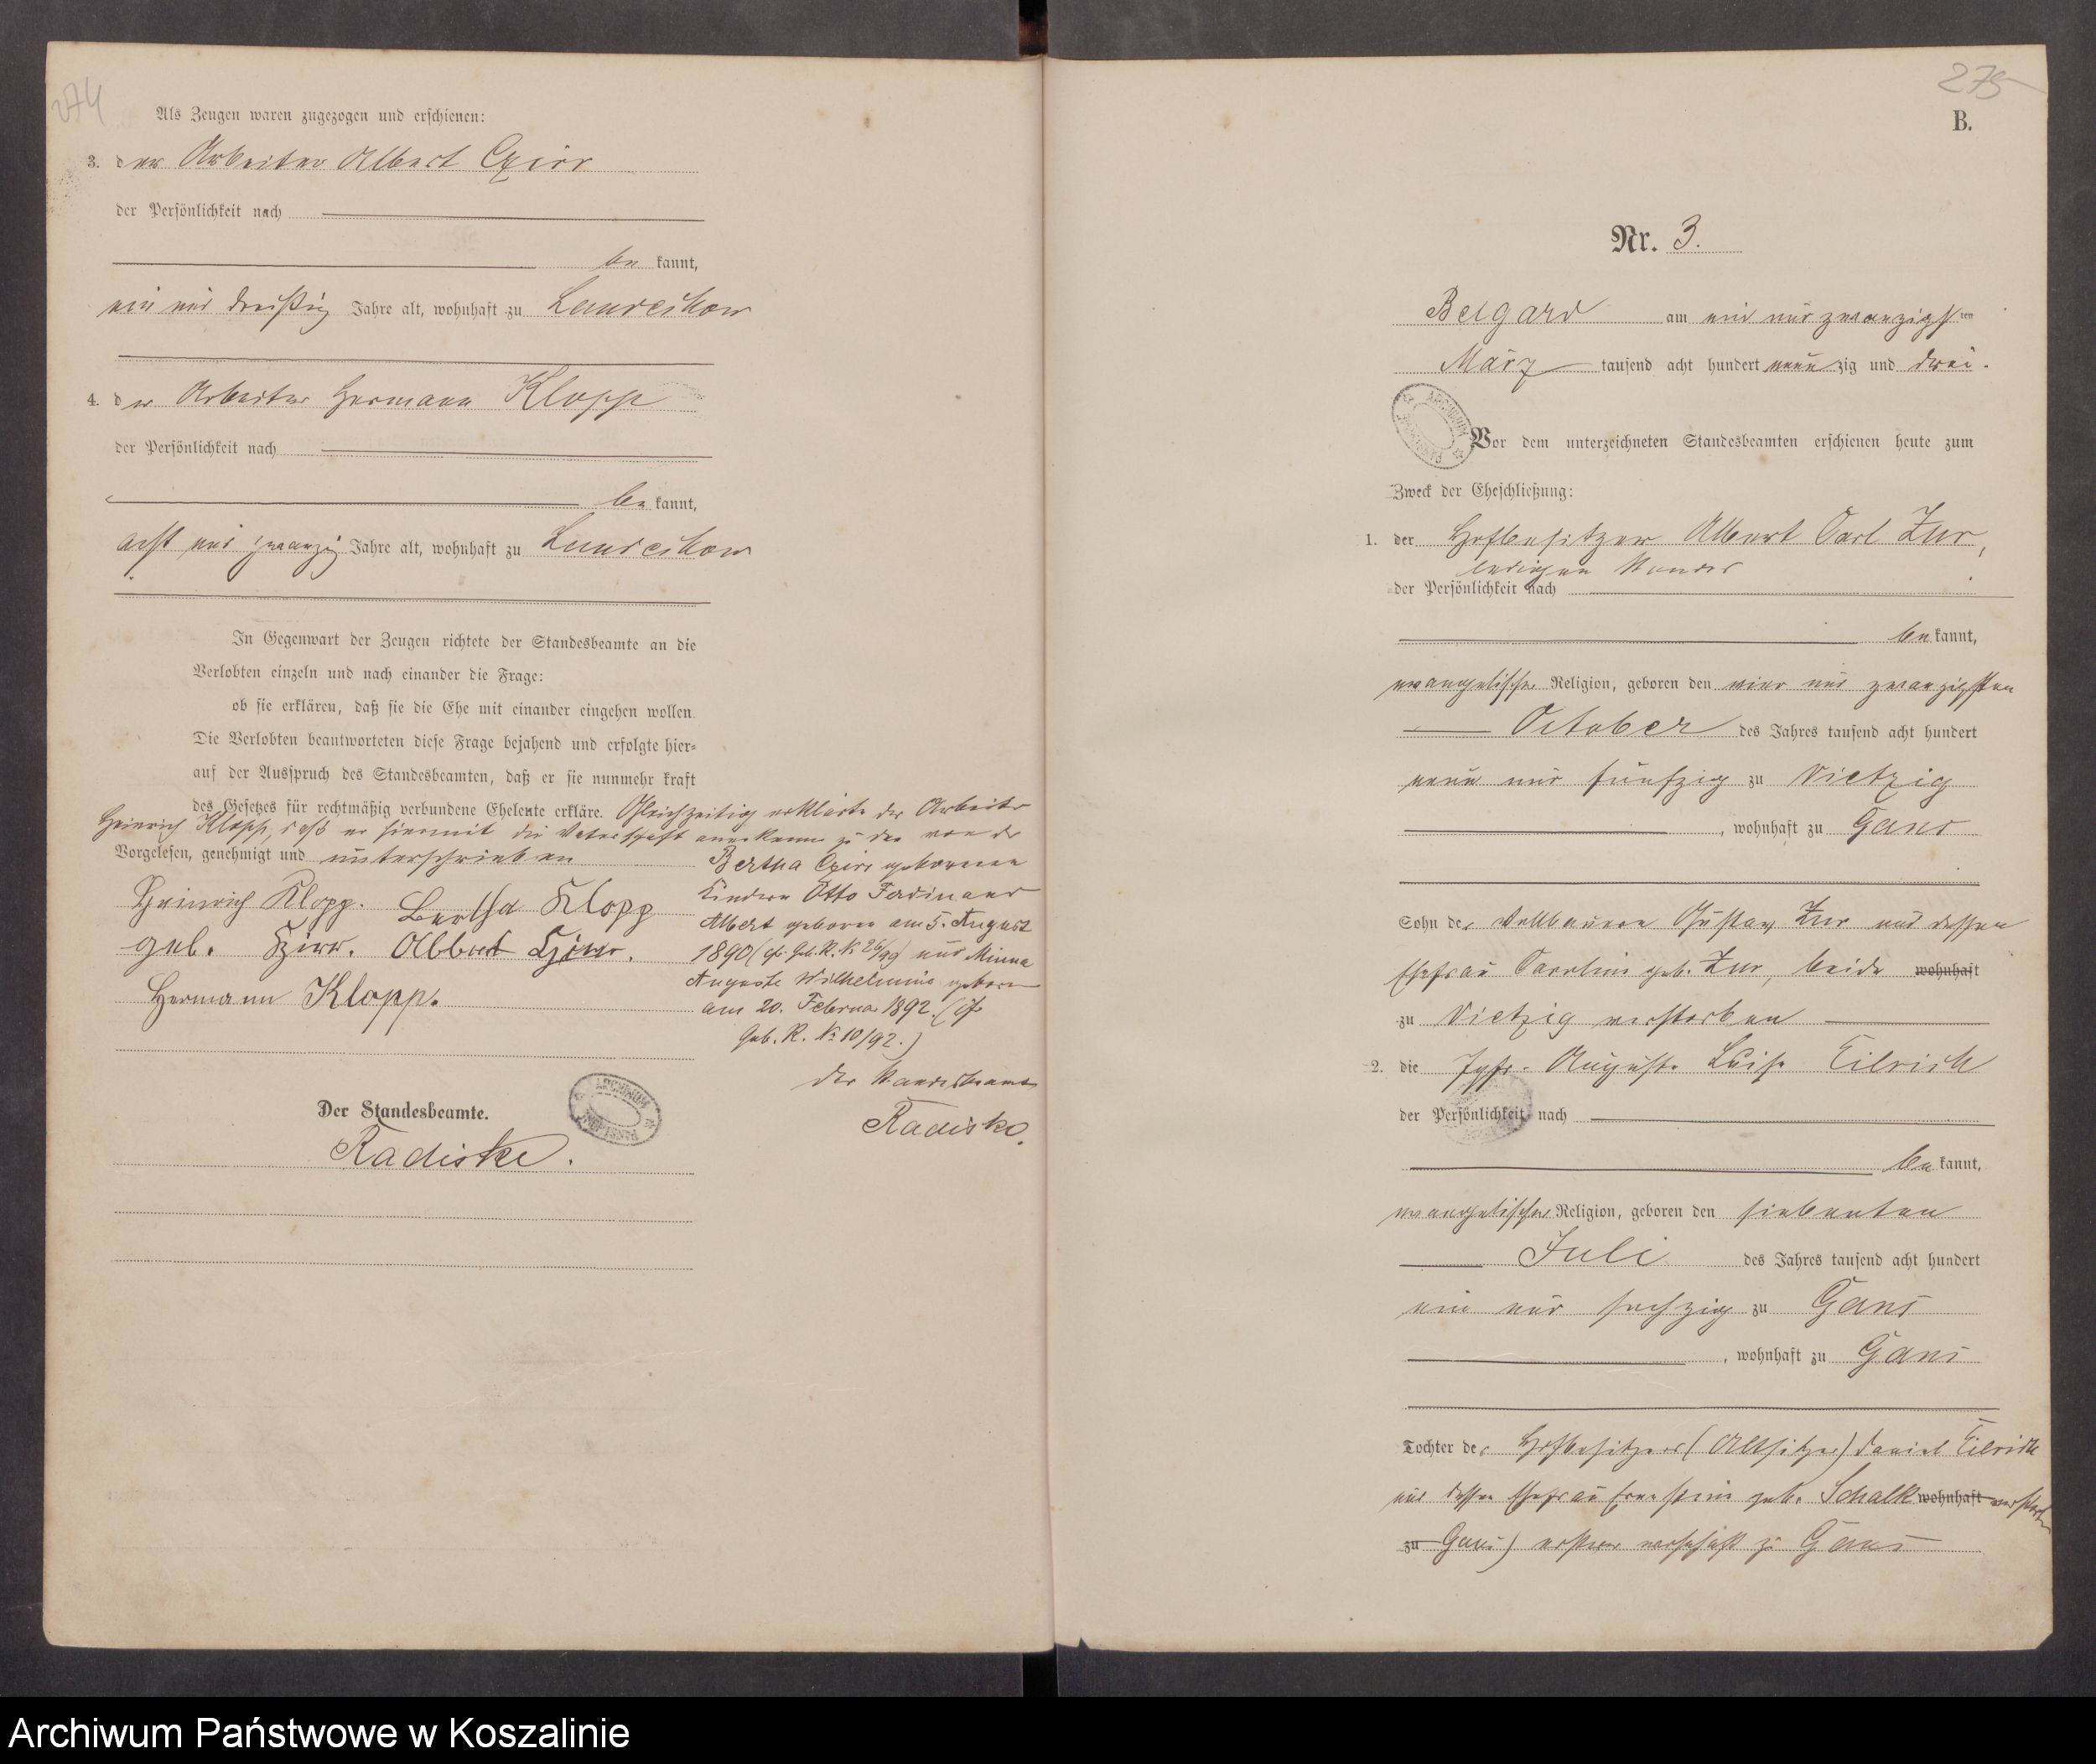 274
Als Zeugen waren zugezogen und erschienen:
3. der Arbeiter Albert Czirr
der Persönlichkeit nach
be kannt,
ein und dreißig Jahre alt, wohnhaft zu Landechow
4. der Arbeiter Hermann Klopp
der Persönlichkeit nach
be kannt,
acht und zwanzig Jahre alt, wohnhaft zu Landechow
In Gegenwart der Zeugen richtete der Standesbeamte an die
Verlobten einzeln und nach einander die Frage:
ob sie erklären, daß sie die Ehe mit einander eingehen wollen.
Die Verlobten beantworteten diese Frage bejahend und erfolgte hier=
auf der Ausspruch des Standesbeamten, daß er sie nunmehr kraft
des Gesetzes für rechtmäßig verbundene Eheleute erkläre. Gleichzeitig erklärte der Arbeiter
Heinrich Klopp, daß er hiermit die Vaterschaft anerkenne zu den von der
Bertha Czirr geborenen
Kindern Otto Ferdinand
Albert geboren am 5. August
1890 (cfr. Geb. R. № 26/90) und Minna
Auguste Wilhelmine geboren
am 20. Februar 1892. (cfr
Geb. R. № 10/92.)
Der Standesbeamte
Radiske.
Vorgelesen, genehmigt und unterschrieben
Heinrich Klopp. Bertha Klopp
geb. Czirr. Albert Czirr.
Hermann Klopp.
Der Standesbeamte.
Radiske.
275
B.
Nr. 3.
Belgard am ein und zwanzigsten
März tausend acht hundert neunzig und drei.
Vor dem unterzeichneten Standesbeamten erschienen heute zum
Zweck der Eheschließung:
1. der Hofbesitzer Albert Carl Zur,
ledigen Standes
der Persönlichkeit nach
be kannt,
evangelischer Religion, geboren den vier und zwanzigsten
October des Jahres tausend acht hundert
neun und fünfzig zu Vietzig
, wohnhaft zu Gans
Sohn des Vollbauern Gustav Zur und dessen
Ehefrau Caroline geb. Zur, beide wohnhaft
zu Vietzig verstorben
2. die Jgfr. Auguste Luise Eilrich
der Persönlichkeit nach
be kannt,
evangelischer Religion, geboren den siebenten
Juli des Jahres tausend acht hundert
ein und sechzig zu Gans
, wohnhaft zu Gans
Tochter des Hofbesitzers (Altsitzer) Daniel Eilrich
und dessen Ehefrau Ernestine geb. Schalk wohnhaft verstorben
zu Gans) ersterer wohnhaft zu Gans
Archiwum Państwowe w Koszalinie